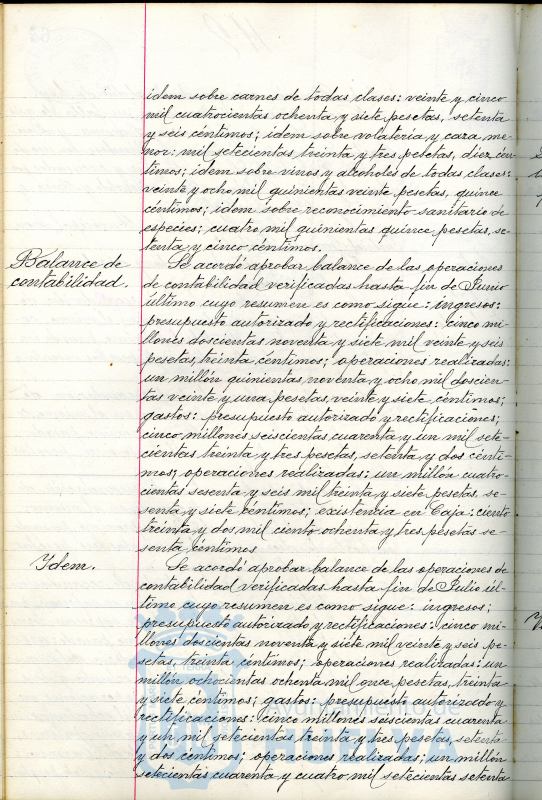 idem sobre carnes de todas clases: veinte y cinco
mil cuatrocientas ochenta y siete pesetas, setenta
y seis céntimos; idem sobre volateria y caza me-
nor: mil setecientas treinta y tres pesetas, diez cén-
timos; idem sobre vinos y alcoholes de todas clases:
veinte y ocho mil quinientas veinte pesetas, quince
céntimos; idem sobre reconocimiento sanitario de
especies; cuatro mil quinientas quince pesetas, se-
tenta y cinco céntimos.
Balance de
contabilidad.
Se acordó aprobar balance de las operaciones
de contabilidad verificadas hasta fin de Junio
último cuyo resumen es como sigue: ingresos:
presupuesto autorizado y rectificaciones: cinco mi-
llones doscientas noventa y siete mil veinte y seis
pesetas, treinta céntimos; operaciones realizadas:
un millón quinientas noventa y ocho mil doscien-
tas veinte y una pesetas, veinte y siete céntimos;
gastos: presupuesto autorizado y rectificaciones;
cinco millones seiscientas cuarenta y un mil sete-
cientas treinta y tres pesetas, setenta y dos cénti-
mos; operaciones realizadas: un millón cuatro-
cientas sesenta y seis mil treinta y siete pesetas, se-
senta y siete céntimos; existencia en Caja: ciento
treinta y dos mil ciento ochenta y tres pesetas se-
senta céntimos
Ydem.
Se acordó aprobar balance de las operaciones de
contabilidad verificadas hasta fin de Julio úl-
timo cuyo resumen es como sigue: ingresos;
presupuesto autorizado y rectificaciones: cinco mi-
llones doscientas noventa y siete mil veinte y seis pe-
setas, treinta céntimos; operaciones realizadas: un
millón ochocientas ochenta mil once pesetas, treinta
y siete céntimos; gastos: presupuesto autorizado y
rectificaciones: cinco millones seiscientas cuarenta
y un mil setecientas treinta y tres pesetas, setenta
y dos céntimos; operaciones realizadas; un millón
setecientas cuarenta y cuatro mil setecientas setenta
Ayuntamiento de
HUELVA